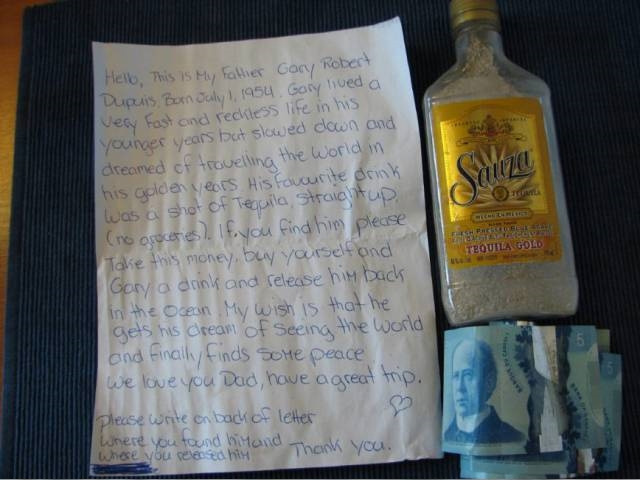 Hello, This is My Father Gary Robert
Dupuis, Born July 1, 1954. Gary lived a
very fast and reckless life in his
younger years but slowed down and
dreamed of travelling the world in
his golden years. His favourite drink
was a shot of Tequila, straight up.
(no groceries). If you find him please
Take this money, buy yourself and
Gary a drink and release him back
in the ocean. My wish is that he
gets his dream of seeing the world
and finally finds some peace
We love you Dad, have a great trip.
please write on back of letter
where you found him and
where you released him
Thank you.
Sauza
TEQUILA
HECHO EN MEXICO
FRESH PRESSED BLUE AGAVE
TEQUILA GOLD
5
5